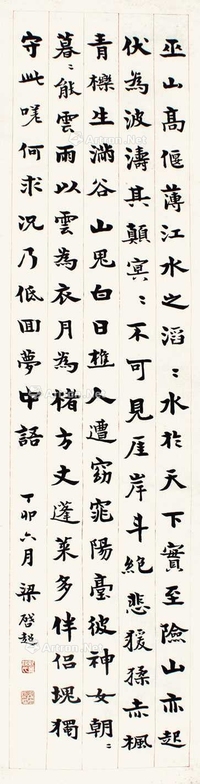 巫山高偃薄江水之滔〻水於天下實至險山亦起
伏為波濤其顛冥〻不可見厓岸斗絕悲猨猱赤楓
青櫟生滿谷山鬼白日樵人遭窈窕陽臺彼神女朝〻
暮〻能雲雨以雲為衣月為褚方丈蓬萊多伴侶塊獨
守此嗟何求況乃低回夢中語
丁卯六月 梁啓超